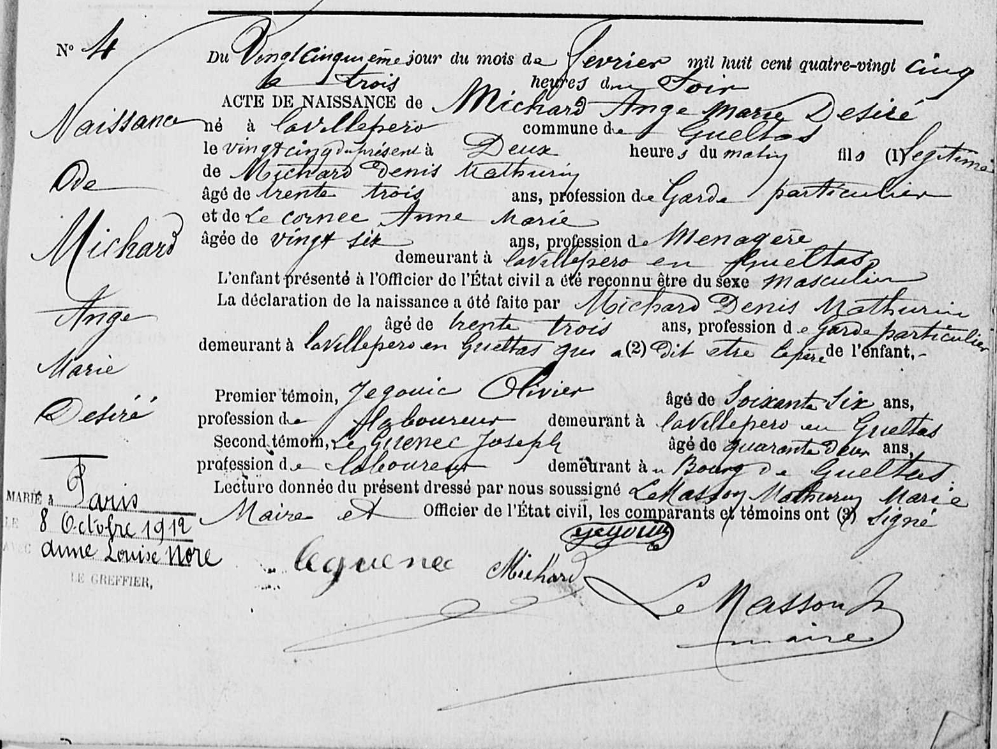 N° 4
Naissance
De
Michard
Ange
Marie
Désiré
MARIÉ à Paris
LE 8 Octobre 1912
AVEC Anne Louise Nore
LE GREFFIER,
Du Vingt cinquième jour du mois de février mil huit cent quatre-vingt cinq
à trois heures du Soir
ACTE DE NAISSANCE de Michard Ange Marie Désiré
né à lavillepero commune de Gueltas
le vingt cinq du présent à Deux heures du matin fils (1) légitime
de Michard Denis Mathurin
âgé de trente trois ans, profession de Garde particulier
et de Le cornec Anne Marie
âgée de vingt six ans, profession de Menagère
demeurant à lavillepero en Gueltas
L'enfant présenté à l'Officier de l'État civil a été reconnu être du sexe masculin
La déclaration de la naissance a été faite par Michard Denis Mathurin
âgé de trente trois ans, profession de Garde particulier
demeurant à lavillepero en Gueltas qui a (2) dit etre le père de l'enfant,-
Premier témoin, Jegouic Olivier âgé de Soixante Six ans,
profession de laboureur demeurant à lavillepero en Gueltas
Second témoin, Le Guenec Joseph âgé de quarante Deux ans,
profession de laboureur demeurant à u Bourg de Gueltas
Lecture donnée du présent dressé par nous soussigné Le Masson Mathurin Marie
Maire et Officier de l'État civil, les comparants et témoins ont (3) signé
leguenec Michard Le Masson
maire